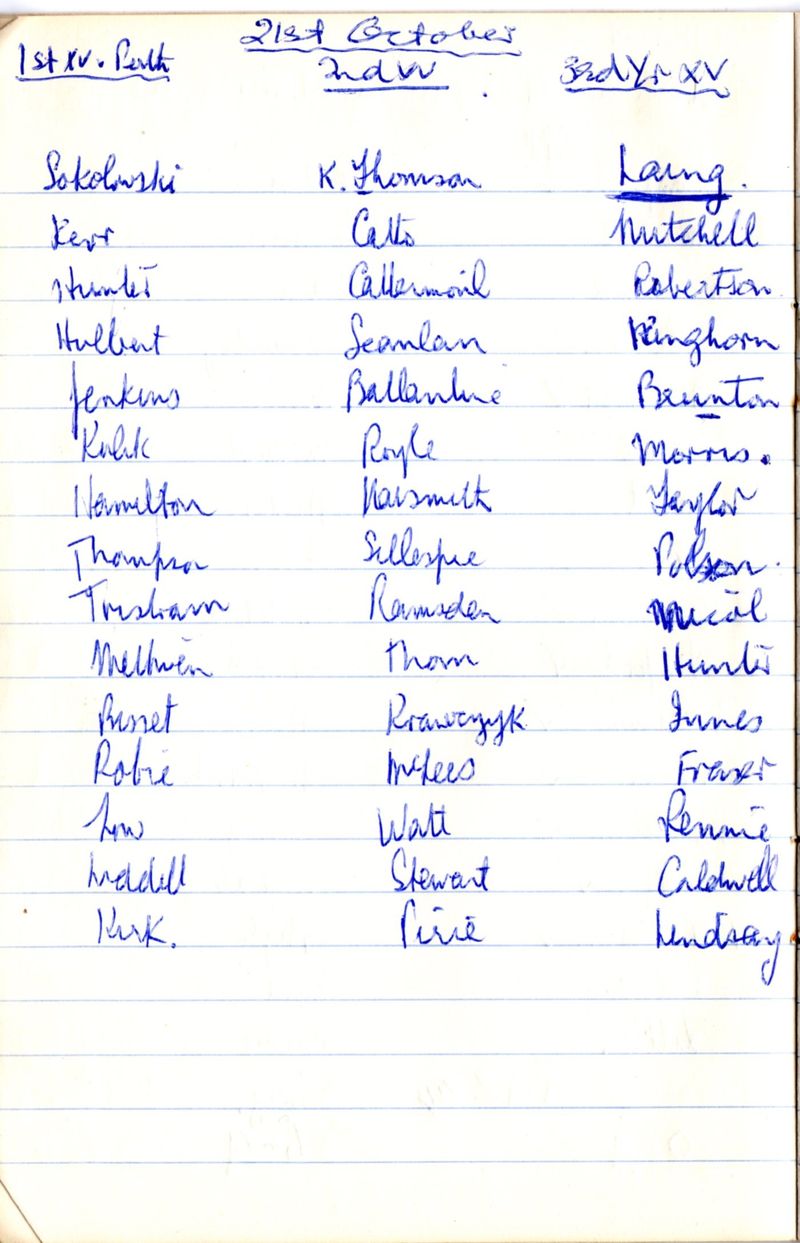 21st October
1st XV. Perth 2nd XV 3rd Yr XV
Sokolowski K. Thomson Laing.
Kerr Catto Mutchell
Hunter Cattermoul Robertson
Hulbert Scanlan Kinghorn
Jenkins Ballantine Brunton
Kubik Royle Morris.
Hamilton Naismith Taylor
Thompson Gillespie Polson.
Tristram Ramsden Nicol
Methven Thom Hunter
Bisset Krawczyk Innes
Robie McLees Fraser
Low Watt Rennie
Weddell Stewart Caldwell
Kirk. Pirie Lindsay